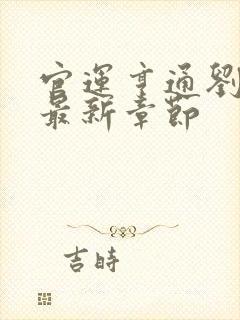 官運亨通劉
最新章節
吉時